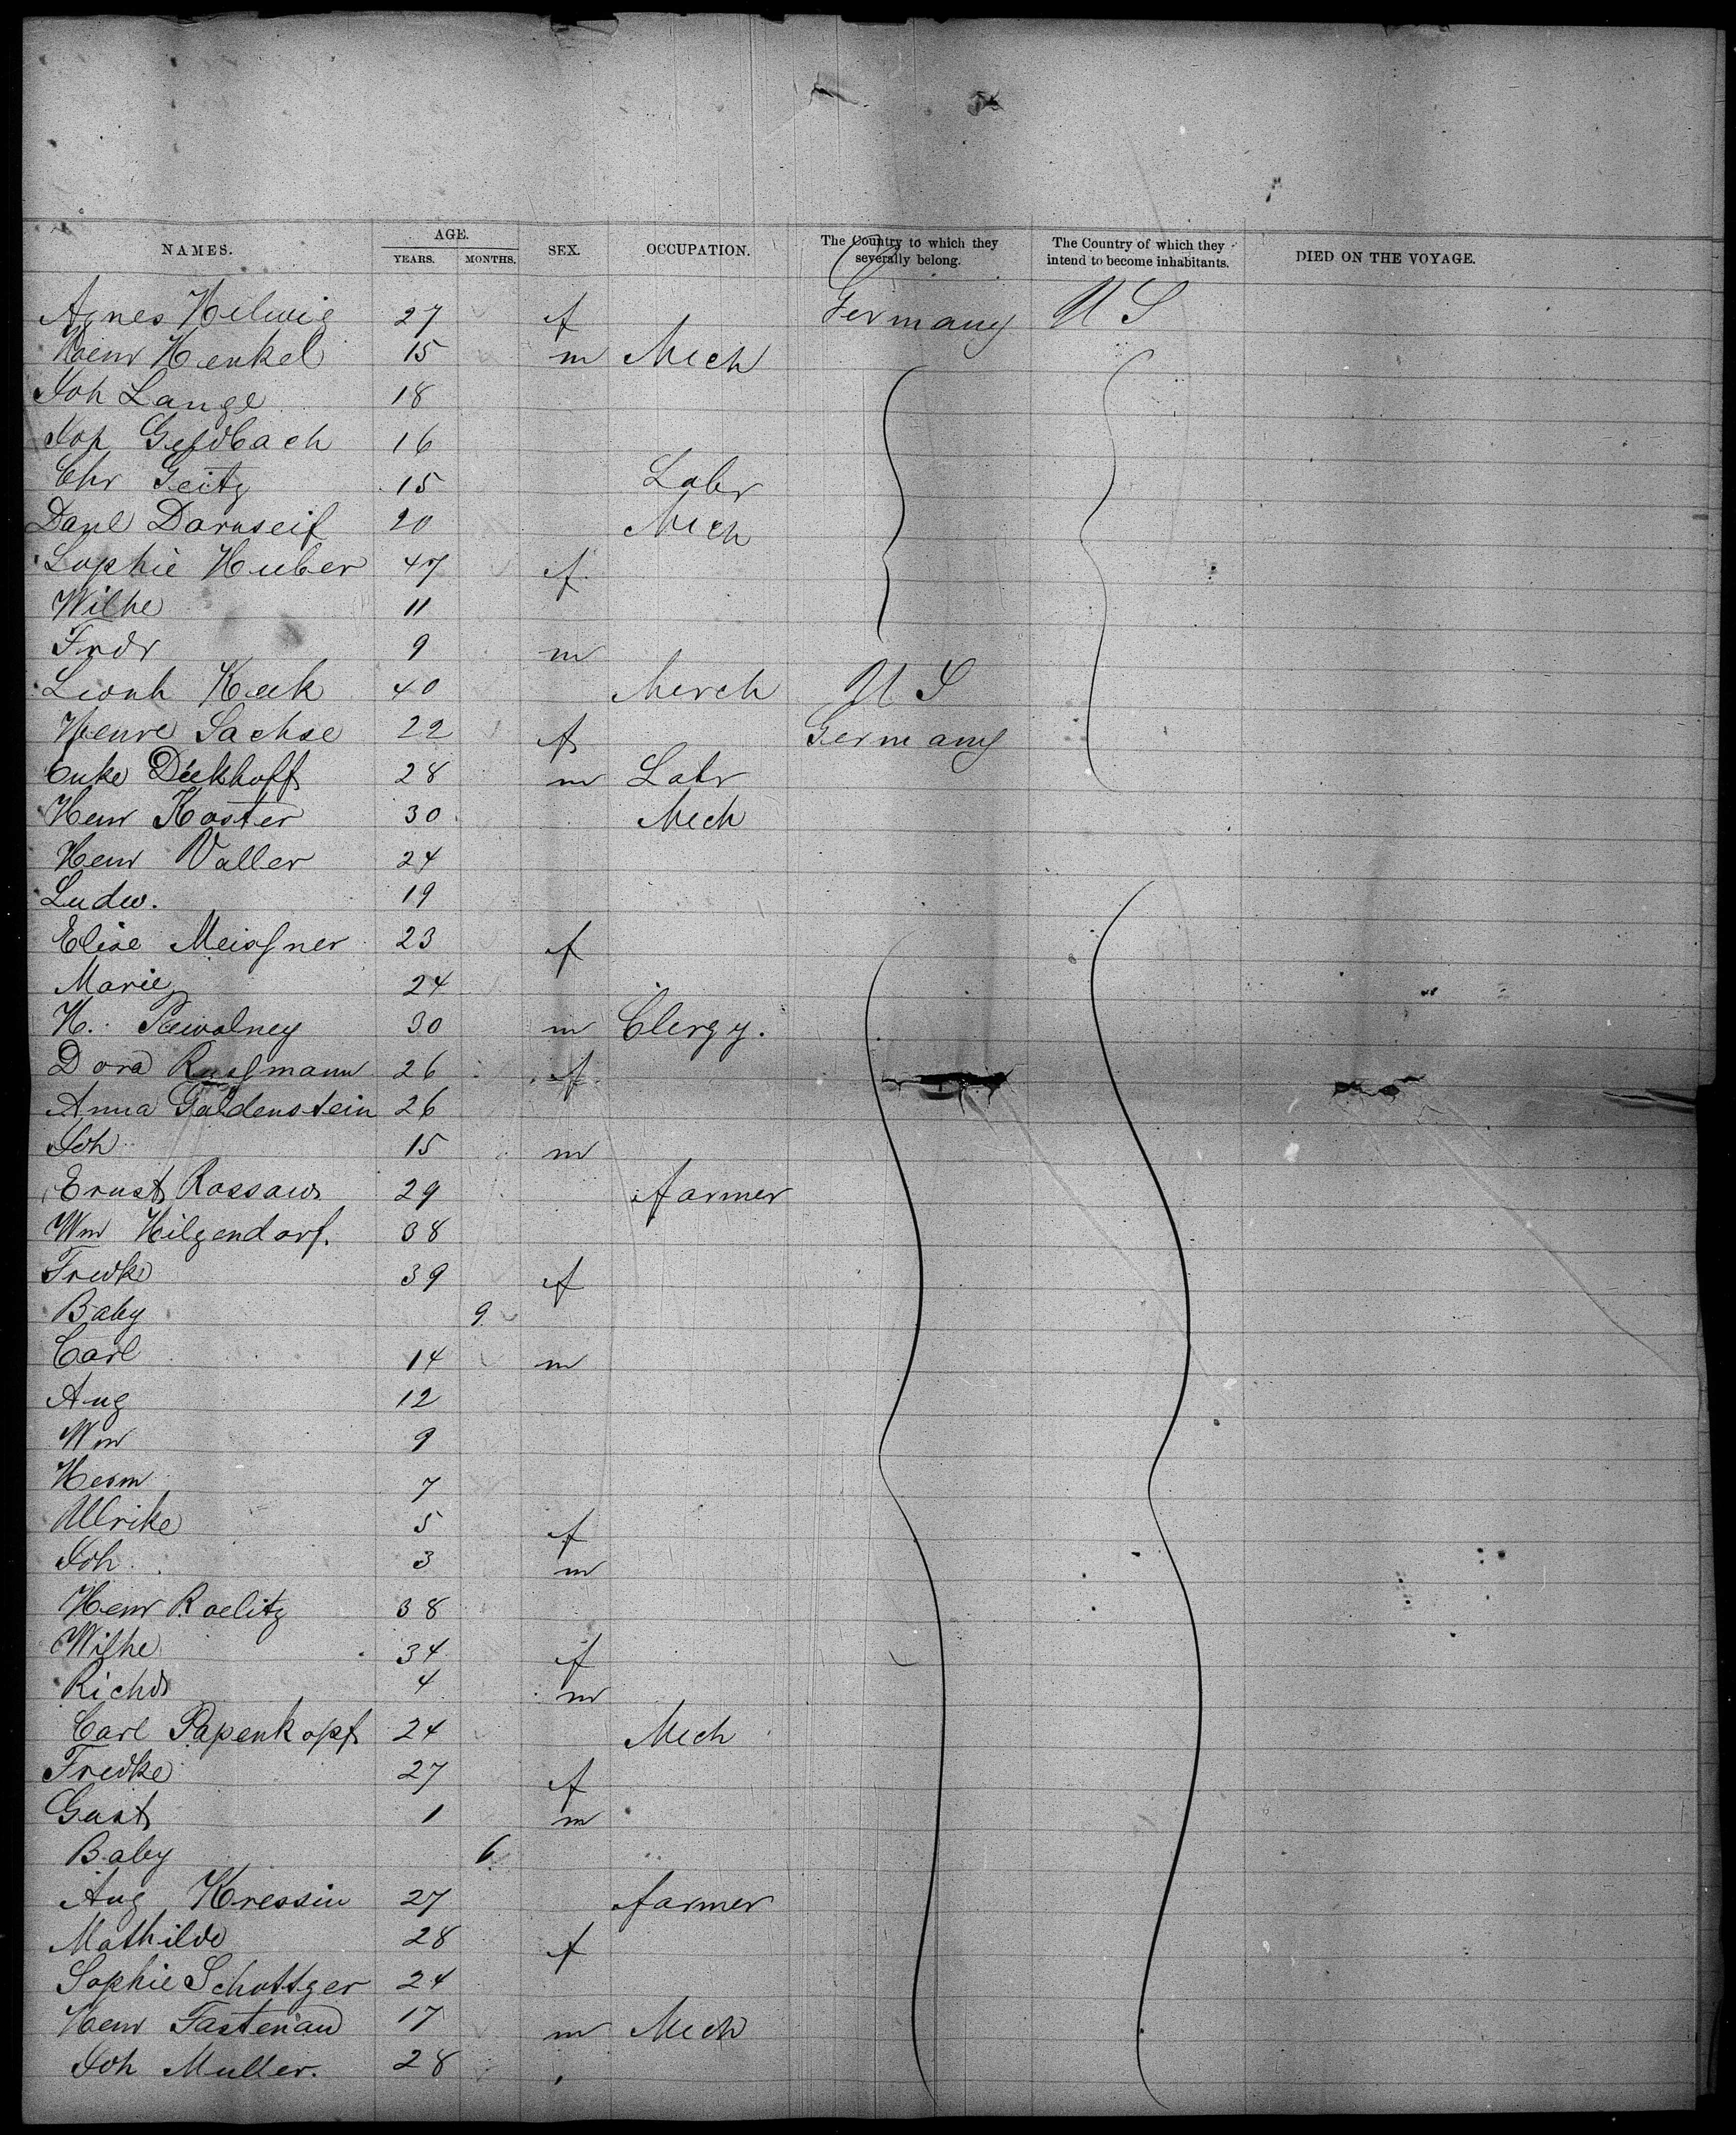 NAMES. AGE. YEARS. MONTHS. SEX. OCCUPATION. The Country to which they severally belong. The Country of which they intend to become inhabitants. DIED ON THE VOYAGE.
Agnes Helwig 27 f Germany U S
Henr Henkel 15 m Mech
Joh Lange 18
Joh 16
Chr Geitz 15 Labr
Danl Darnseif 20 Mech
Sophie Huber 47 f
Wilhe 11
Frdr 9 m
Leonh Keek 40 Merch U S
Henre Sachse 22 f Germany
Diekhoff 28 m Labr
Henr Koster 30 Mech
Henr Valler 24
Ludw. 19
Elise Meissner 23 f
Marie 24
H. 30 m Clergy.
Dora Russmann 26 f
Anna Goldenstein 26
Joh 15 m
Ernst Rossow 29 farmer
Wm Hilgendorf. 38
Fredke 39 f
Baby 9
Carl 14 m
Aug 12
Wm 9
Herm 7
Ulrike 5 f
Joh 3 m
Henr Roelitz 38
Wilhe 34 f
Richd 4 m
Carl Papenkopf 24 Mech
Fredke 27 f
Gust 1 m
Baby 6
Aug Kressin 27 farmer
Mathilde 28 f
Sophie Schottger 24
Henr Fastenau 17 m Mech
Joh Muller. 28